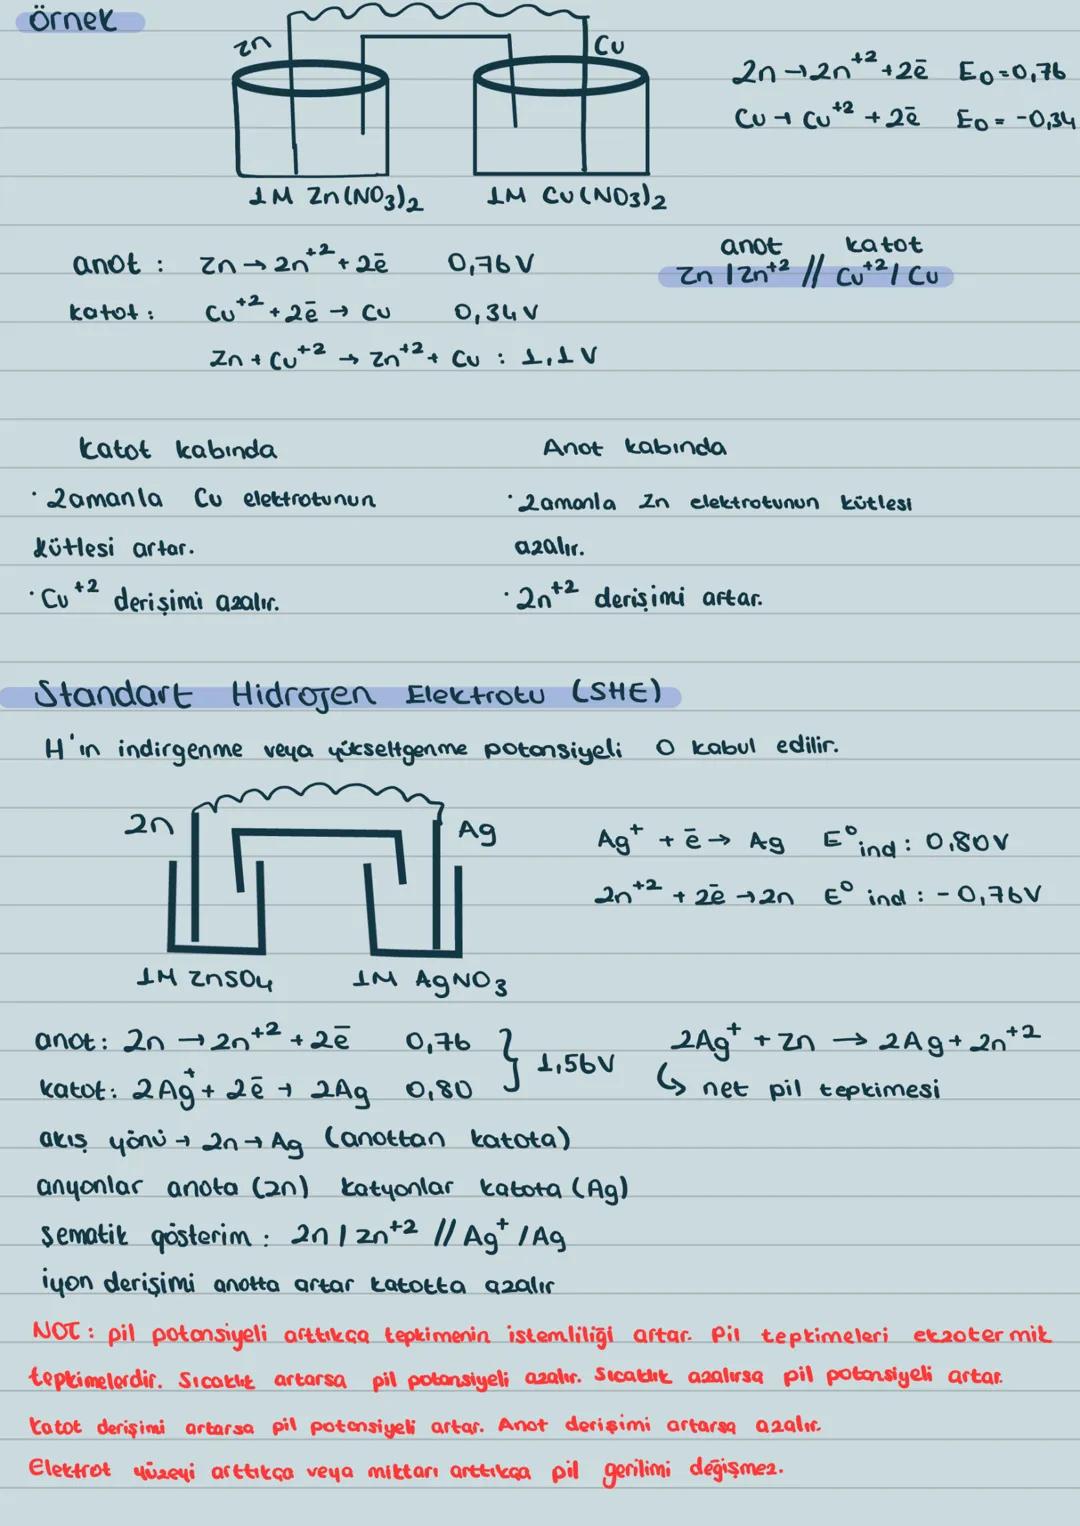 örnek
Zn
Cu
Zn → Zn⁺² + 2ē E₀=0,76
Cu → Cu⁺² + 2ē E₀ = -0,34
1M Zn(NO₃)₂ 1M Cu(NO₃)₂
anot katot
anot : Zn → Zn⁺² + 2ē 0,76 V
Zn | Zn⁺² // Cu⁺² / Cu
katot : Cu⁺² + 2ē → Cu 0,34 V
Zn + Cu⁺² → Zn⁺² + Cu : 1,1 V
Katot kabında
Anot kabında
· Zamanla Cu elektrotunun
kütlesi artar.
· Cu⁺² derişimi azalır.
· Zamanla Zn elektrotunun kütlesi
azalır.
· Zn⁺² derişimi artar.
Standart Hidrojen Elektrotu (SHE)
H'ın indirgenme veya yükseltgenme potansiyeli 0 kabul edilir.
Zn
Ag
Ag⁺ + ē → Ag E⁰ind : 0,80V
Zn⁺² + 2ē → Zn E⁰ ind : -0,76V
1M ZnSO₄ 1M AgNO₃
anot: Zn → Zn⁺² + 2ē 0,76
katot: 2Ag⁺ + 2ē → 2Ag 0,80
} 1,56V
2Ag⁺ + Zn → 2Ag + Zn⁺²
↳ net pil tepkimesi
akış yönü → Zn → Ag (anottan katota)
anyonlar anota (Zn) katyonlar katota (Ag)
şematik gösterim : Zn | Zn⁺² // Ag⁺ / Ag
iyon derişimi anotta artar katotta azalır
NOT : pil potansiyeli arttıkça tepkimenin istemliliği artar. Pil tepkimeleri ekzotermik
tepkimelerdir. Sıcaklık artarsa pil potansiyeli azalır. Sıcaklık azalırsa pil potansiyeli artar.
Katot derişimi artarsa pil potansiyeli artar. Anot derişimi artarsa azalır.
Elektrot yüzeyi arttıkça veya miktarı arttıkça pil gerilimi değişmez.